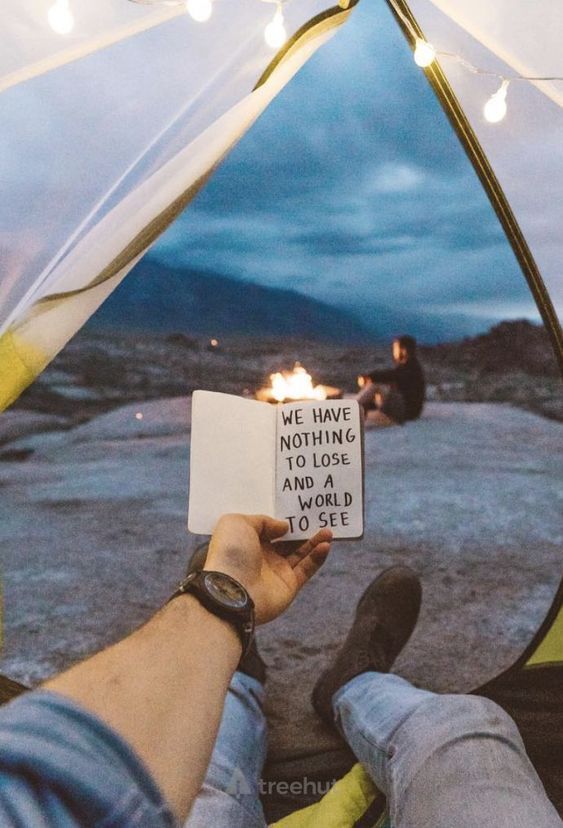 WE HAVE
NOTHING
TO LOSE
AND A
WORLD
TO SEE
treehut